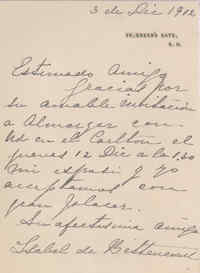 3 de Dic 1912
S. W.
Estimado Amigo
Gracias por
su amable invitación
a Almorzar con
Ud en el Carlton el
jueves 12 Dic a la 1,30
mi esposo y yo
aceptamos con
gran placer.
Su afectisima amiga
Isabel de